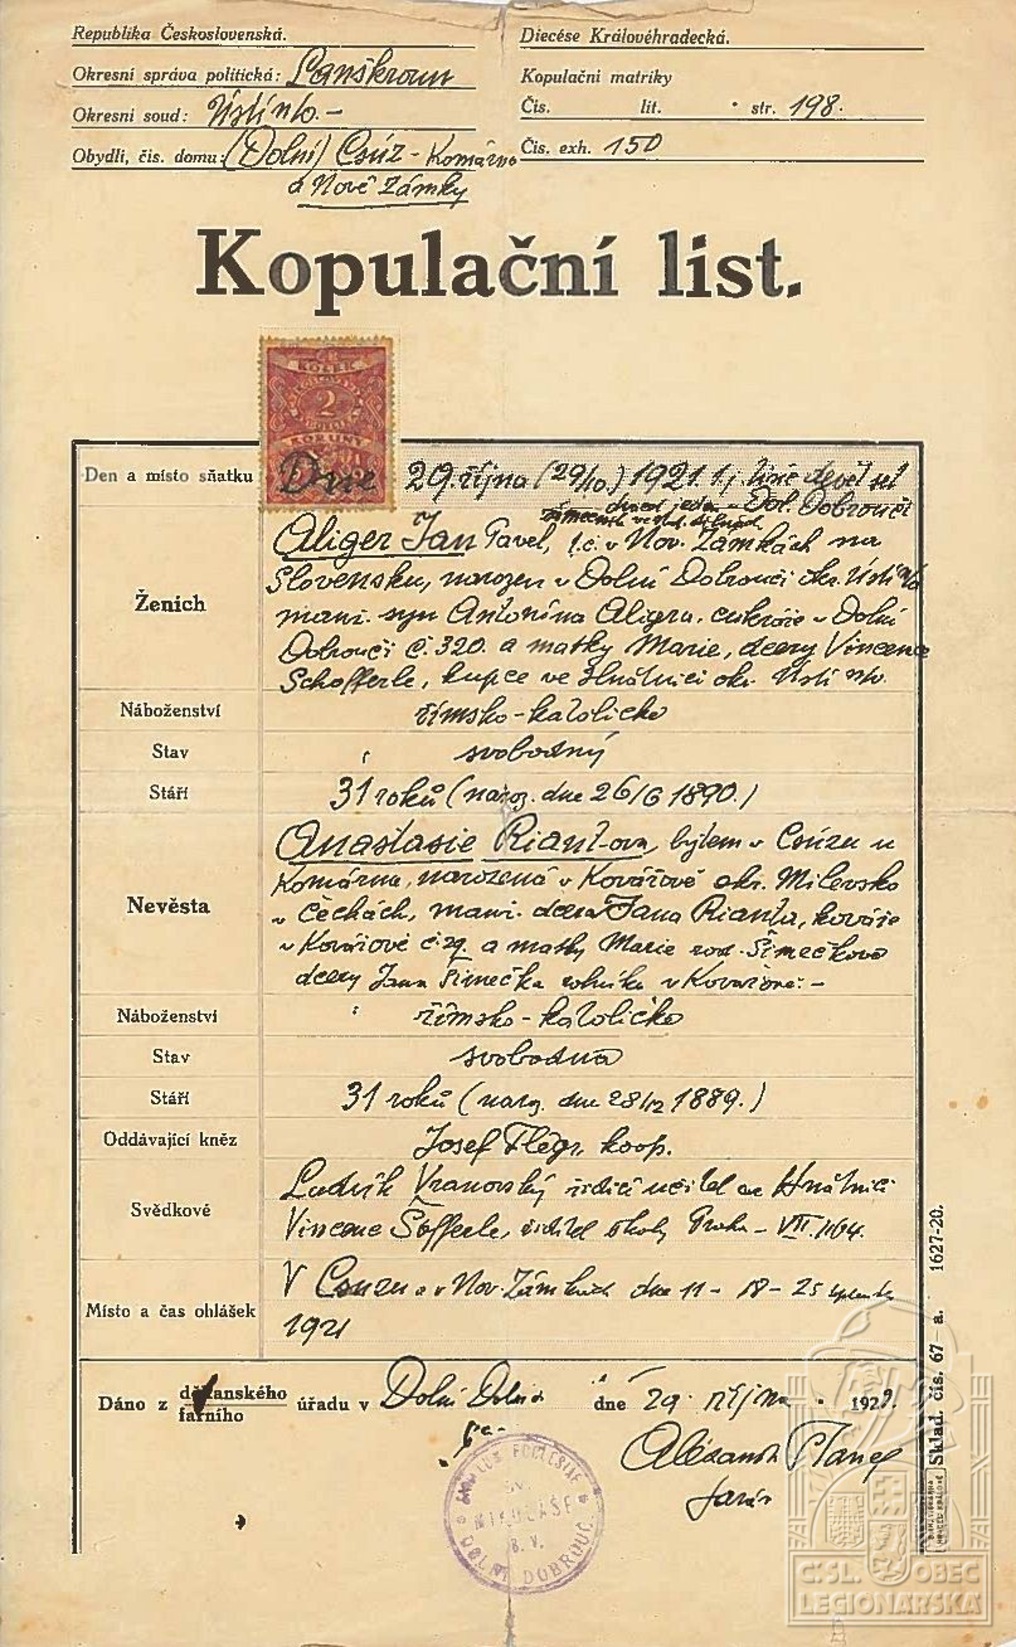 Republika Československá.
Okresní správa politická: Lanškroun
Okresní soud: Ústí n/o. –
Obydlí, čís. domu: (Dolní) Csúz - Komárno
a Nové Zámky
Diecése Královéhradecká.
Kopulační matriky
Čís. lit. str. 198.
Čís. exh. 150
Kopulační list.
KOLEK
2
KORUNY
Den a místo sňatku Dne 29. října (29/10) 1921 t.j. devět set
dvacet jeden Dol. Dobrouči
Ženich
Aliger Jan Pavel, t.č. v Nov. Zámkách na
Slovensku, narozen v Dolní Dobrouči okr. Ústí n/o
manž. syn Antonína Aligra, cukráře v Dolní
Dobrouči č. 320. a matky Marie, dcery Vincence
Schofferle, kupce ve Hnátnici okr. Ústí n/o.
Náboženství římsko-katolické
Stav svobodný
Stáří 31 roků (naroz. dne 26/6 1890.)
Nevěsta
Anastasie Riant-ova, bytem v Csúzu u
Komárna, narozená v Kovářově okr. Milevsko
v Čechách, manž. dcera Jana Rianta, kováře
v Kovářově č. 29. a matky Marie roz. Šimečkové
dcery Jana Šimečka rolníka v Kovářově. –
Náboženství římsko-katolické
Stav svobodná
Stáří 31 roků (naroz. dne 28/12 1889.)
Oddávající kněz Josef Flégr, koop.
Svědkové
Ludvík Vranovský řídící učitel ve Hnátnici
Vincenc Šofferle, ředitel školy Praha – VII. 1164.
Místo a čas ohlášek
V Csuzu a v Nov. Zámkách dne 11 – 18 – 25
1921
Dáno z děkanského
farního úřadu v Dolní dne 29. října 1921.
Alexandr
farář
ECCLESIAE
MIKULÁŠE
B. V.
DOLNÍ DOBROUČ.
Sklad. čís. 67 a. 1627-20.
Č:SL. OBEC
LEGIONÁŘSKÁ